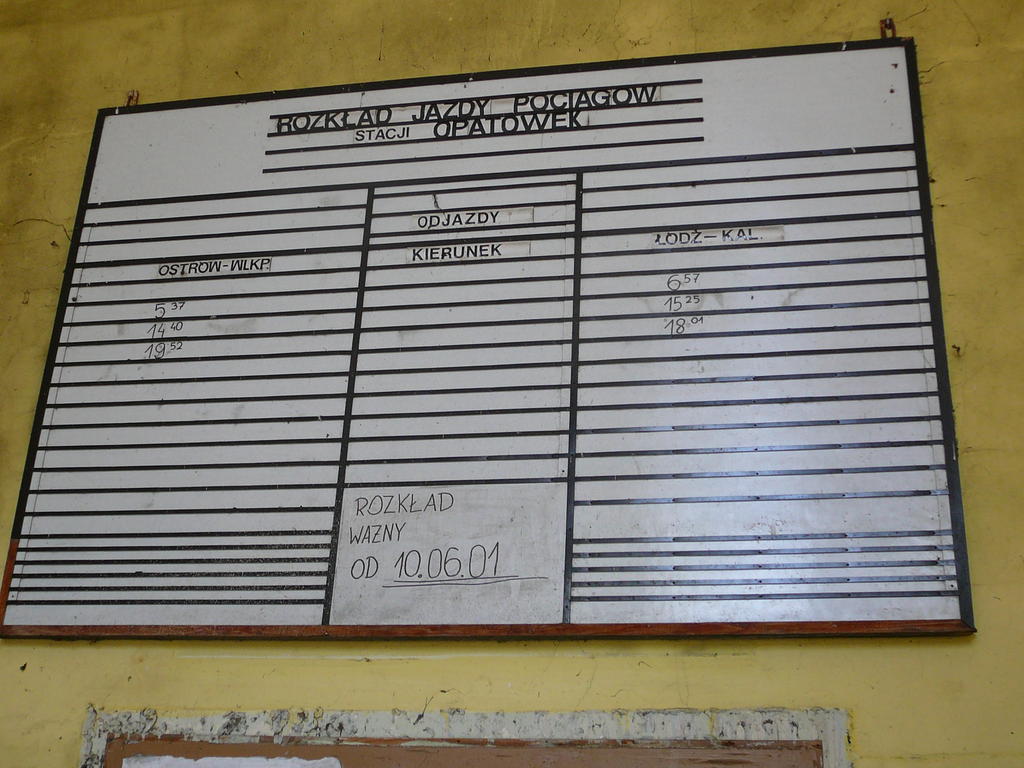 ROZKŁAD JAZDY POCIĄGÓW
STACJI OPATÓWEK
ODJAZDY
KIERUNEK
OSTRÓW-WLKP.
5 37
14 40
19 52
ŁÓDŹ-KAL.
6 57
15 25
18 01
ROZKŁAD
WAŻNY
OD 10.06.01